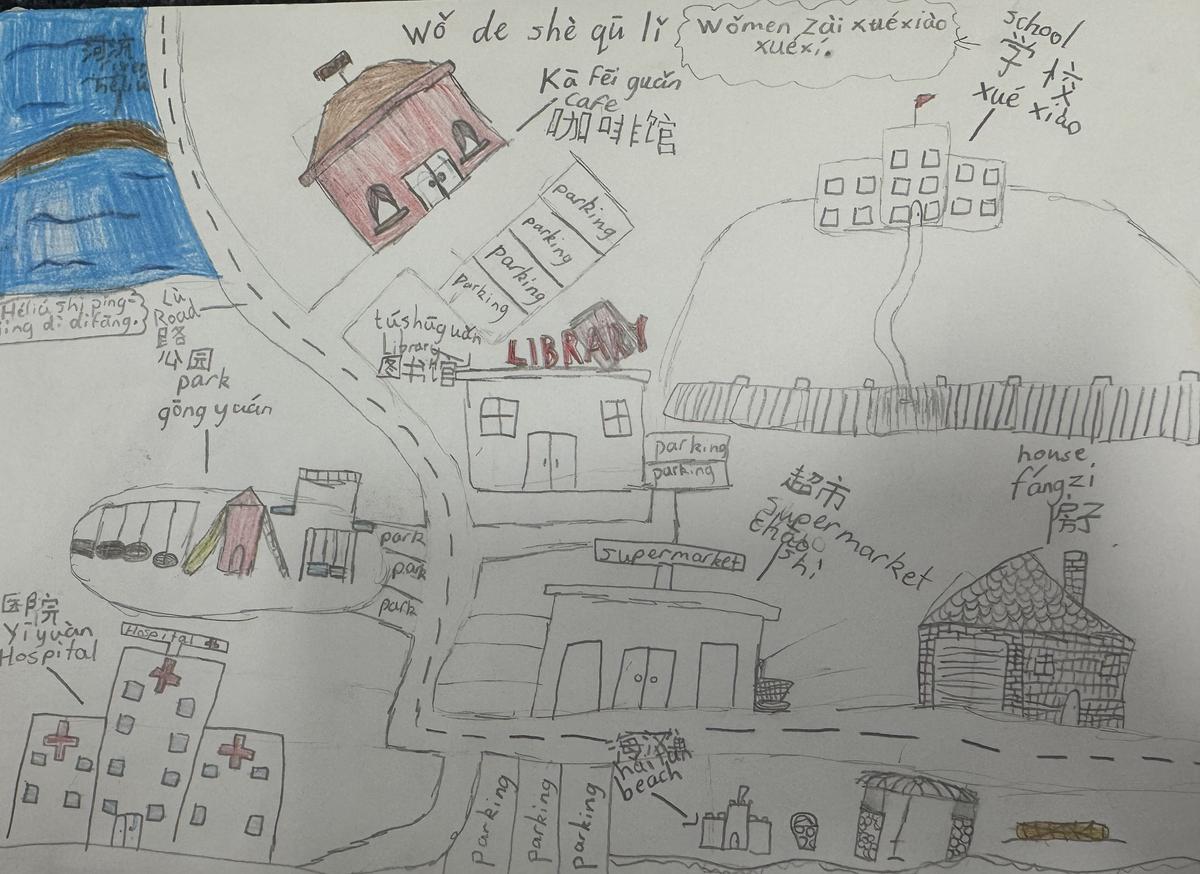 Wǒ de shè qū lǐ
Wǒmen zài xuéxiào
xuéxí.
school
学校
xué xiào
河流
river
héliú
Kā fēi guǎn
cafe
咖啡馆
parking
parking
parking
parking
Héliú shì píng-
jìng dì dìfāng.
Lù
Road
路
túshūguǎn
Library
图书馆
LIBRARY
公园
park
gōng yuán
parking
parking
house
fángzi
房子
超市
Supermarket
chāo
shì
supermarket
park
park
park
医院
Yīyuàn
Hospital
Hospital
海滩
hǎi tān
beach
parking
parking
parking